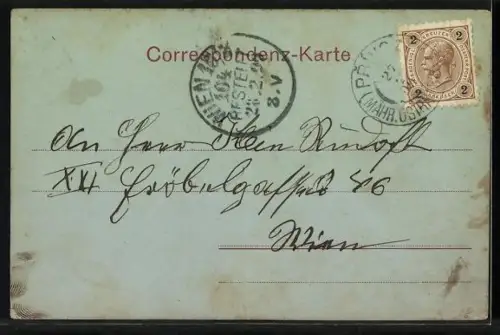 Correspondenz-Karte
WIEN
BESTELLT
8.V
(MÄHR. OSTR
2 KREUZER 2
2 2
An Herrn Rudolf
XVI Fröbelgasse 46
Wien